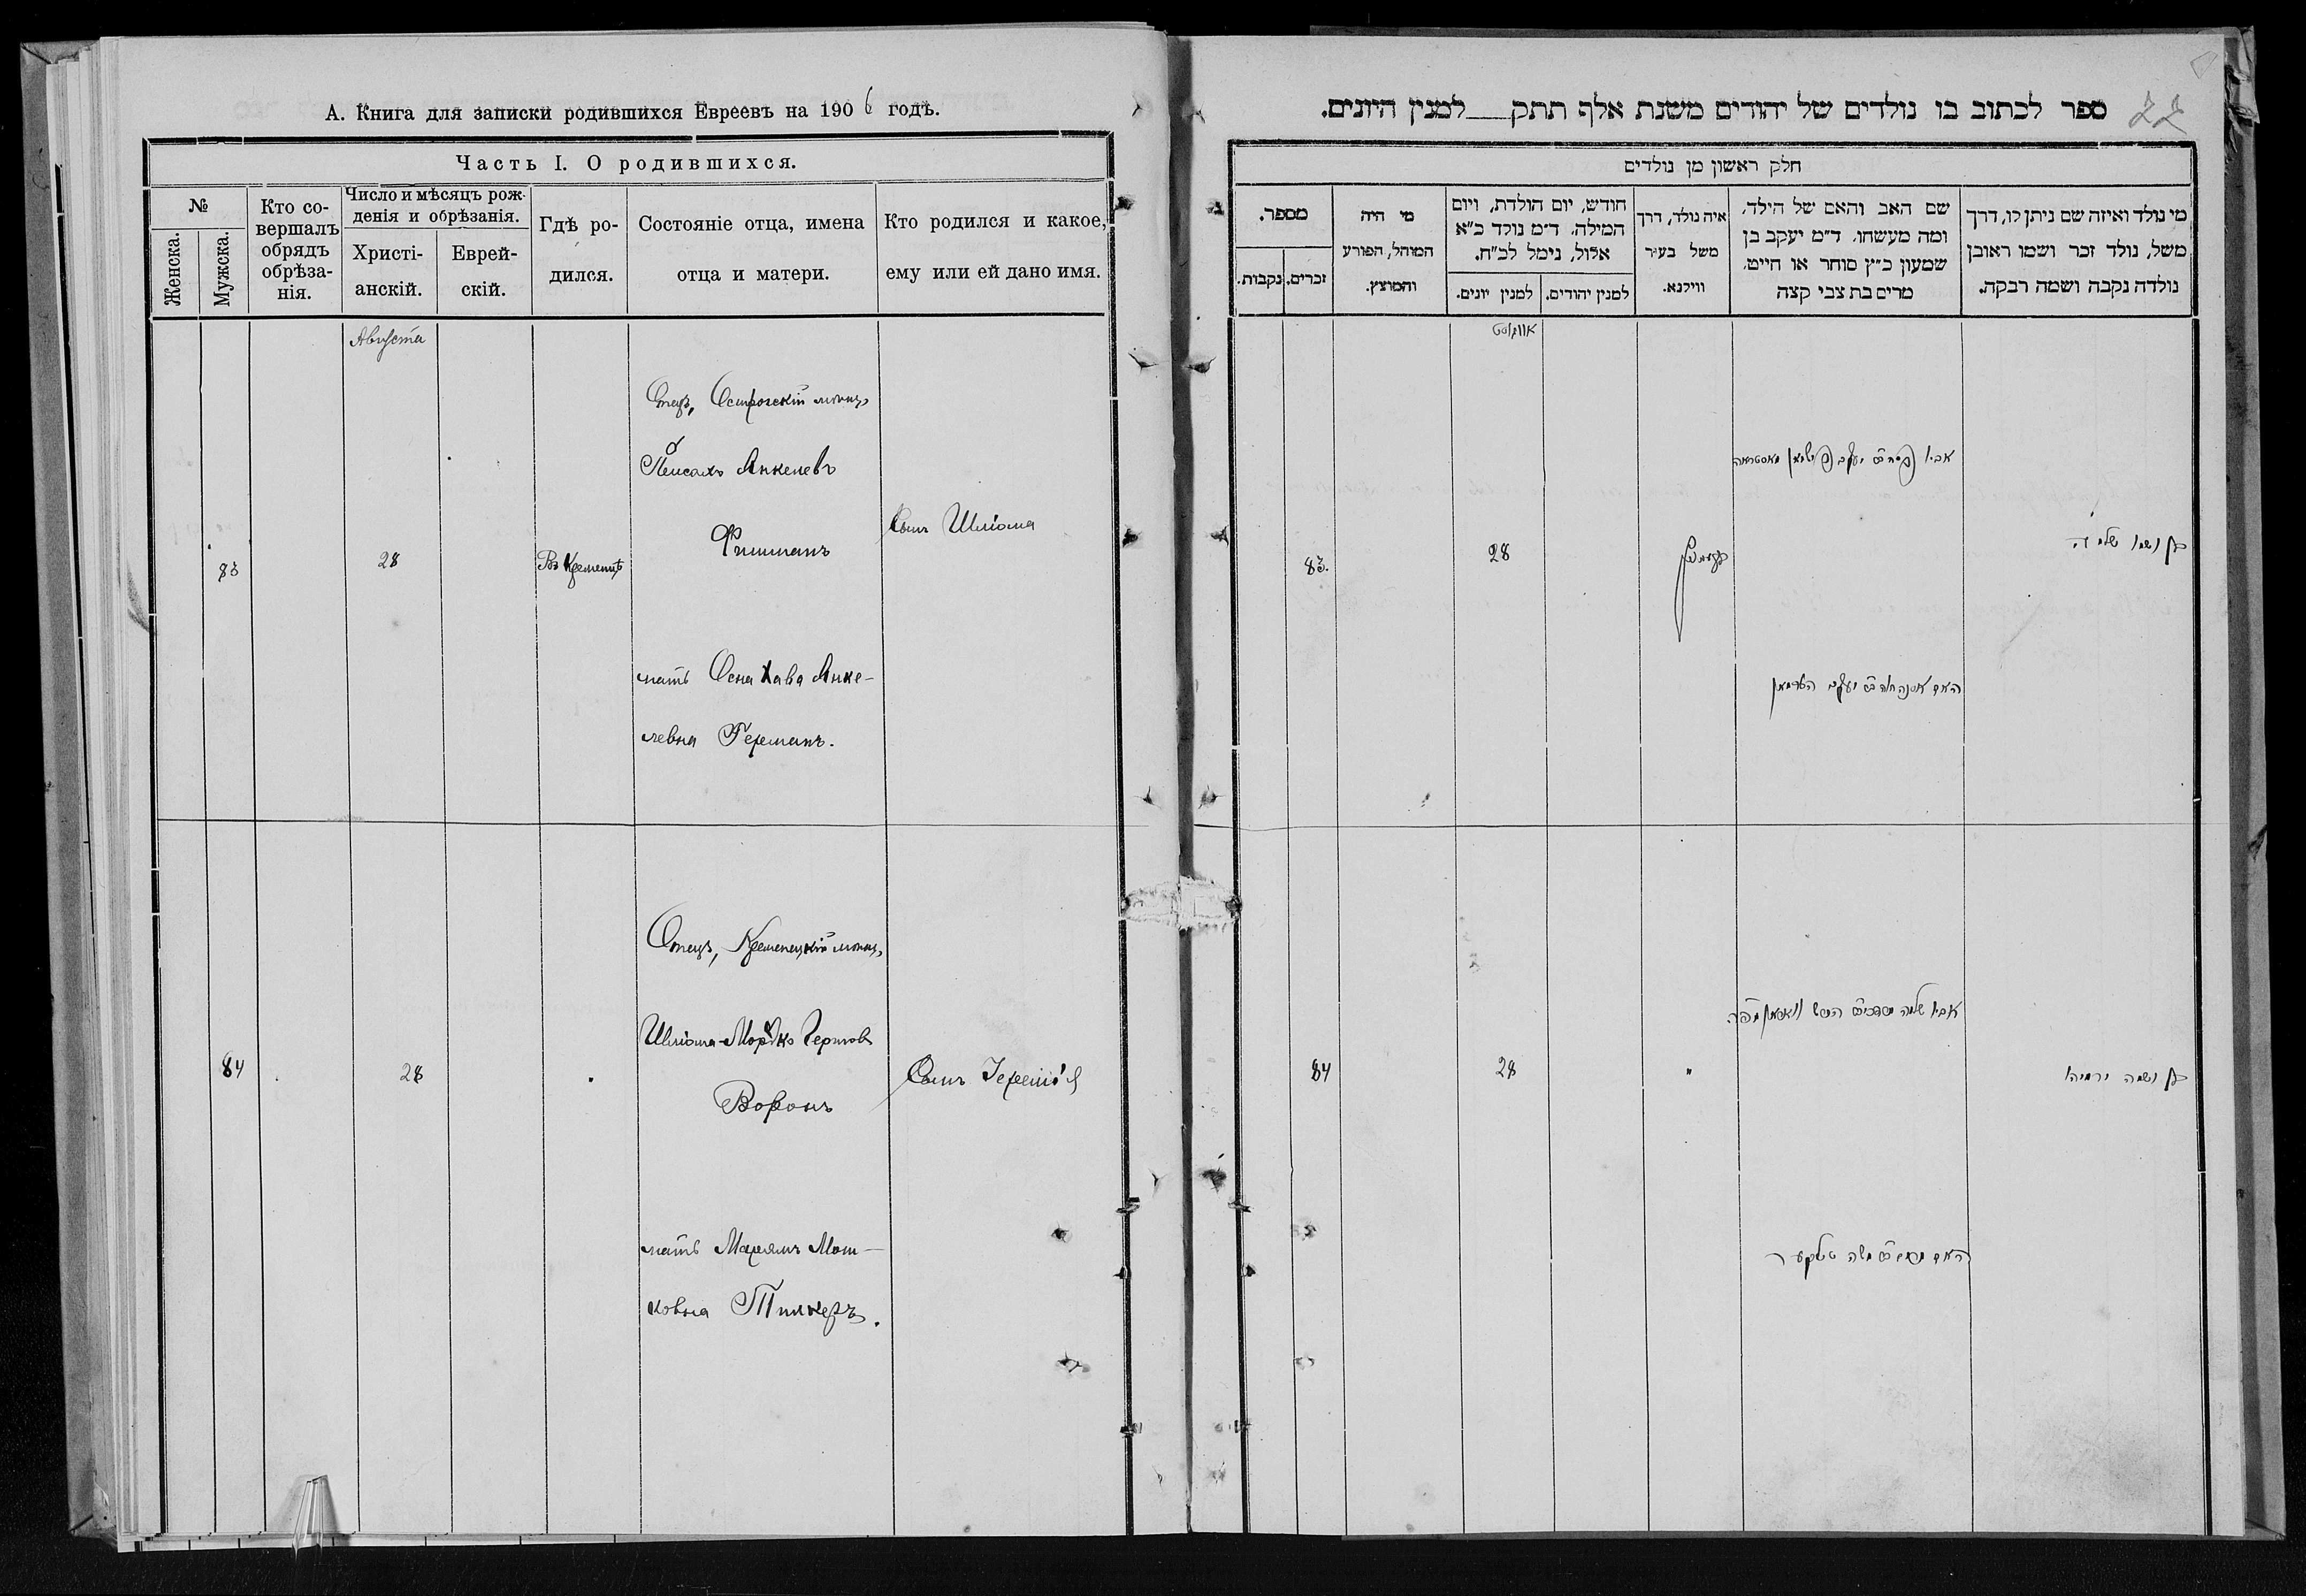 А. Книга для записки родившихся Евреевъ на 1906 годъ.
Часть I. О родившихся.
№
Женска.
Мужска.
Кто со-
вершалъ
обрядъ
обрѣза-
нія.
Число и мѣсяцъ рож-
денія и обрѣзанія.
Христі-
анскій.
Еврей-
скій.
Гдѣ ро-
дился.
Состояніе отца, имена
отца и матери.
Кто родился и какое,
ему или ей дано имя.
Августа
83
28
Въ Кременцѣ
Отецъ, Острогскій мѣщ.
Пейсахъ Янкелевъ
Фишманъ
мать Осна Хава Янке-
левна Германъ.
Сынъ Шлiома
84
28
Отецъ, Кременецкій мѣщ.
Шлiома-Мордко Гершовъ
Воронъ
мать Марьямъ Мош-
ковна Тилкеръ.
Сынъ Іереміѣ
ספר לכתוב בו נולדים של יהודים משנת אלף תתק למנין היונים.
22
חלק ראשון מן נולדים
מי נולד ואיזה שם ניתן לו, דרך
משל, נולד זכר ושמו ראובן
נולדה נקבה ושמה רבקה.
שם האב והאם של הילד,
ומה מעשהו. ד״מ יעקב בן
שמעון כ״ץ סוחר או חייט,
מרים בת צבי קצה
איה נולד, דרך
משל בעיר
ווילנא.
חודש, יום הולדת, ויום
המילה. ד״מ נולד כ״א
אלול, נימל לכ״ח.
למנין יהודים.
למנין יונים.
מי היה
המוהל, הפורע
והמוצץ.
מספר.
זכרים.
נקבות.
אווגוסט
בן ושמו שלמה
28
83.
בן ושמה ירמיהו
"
28
84